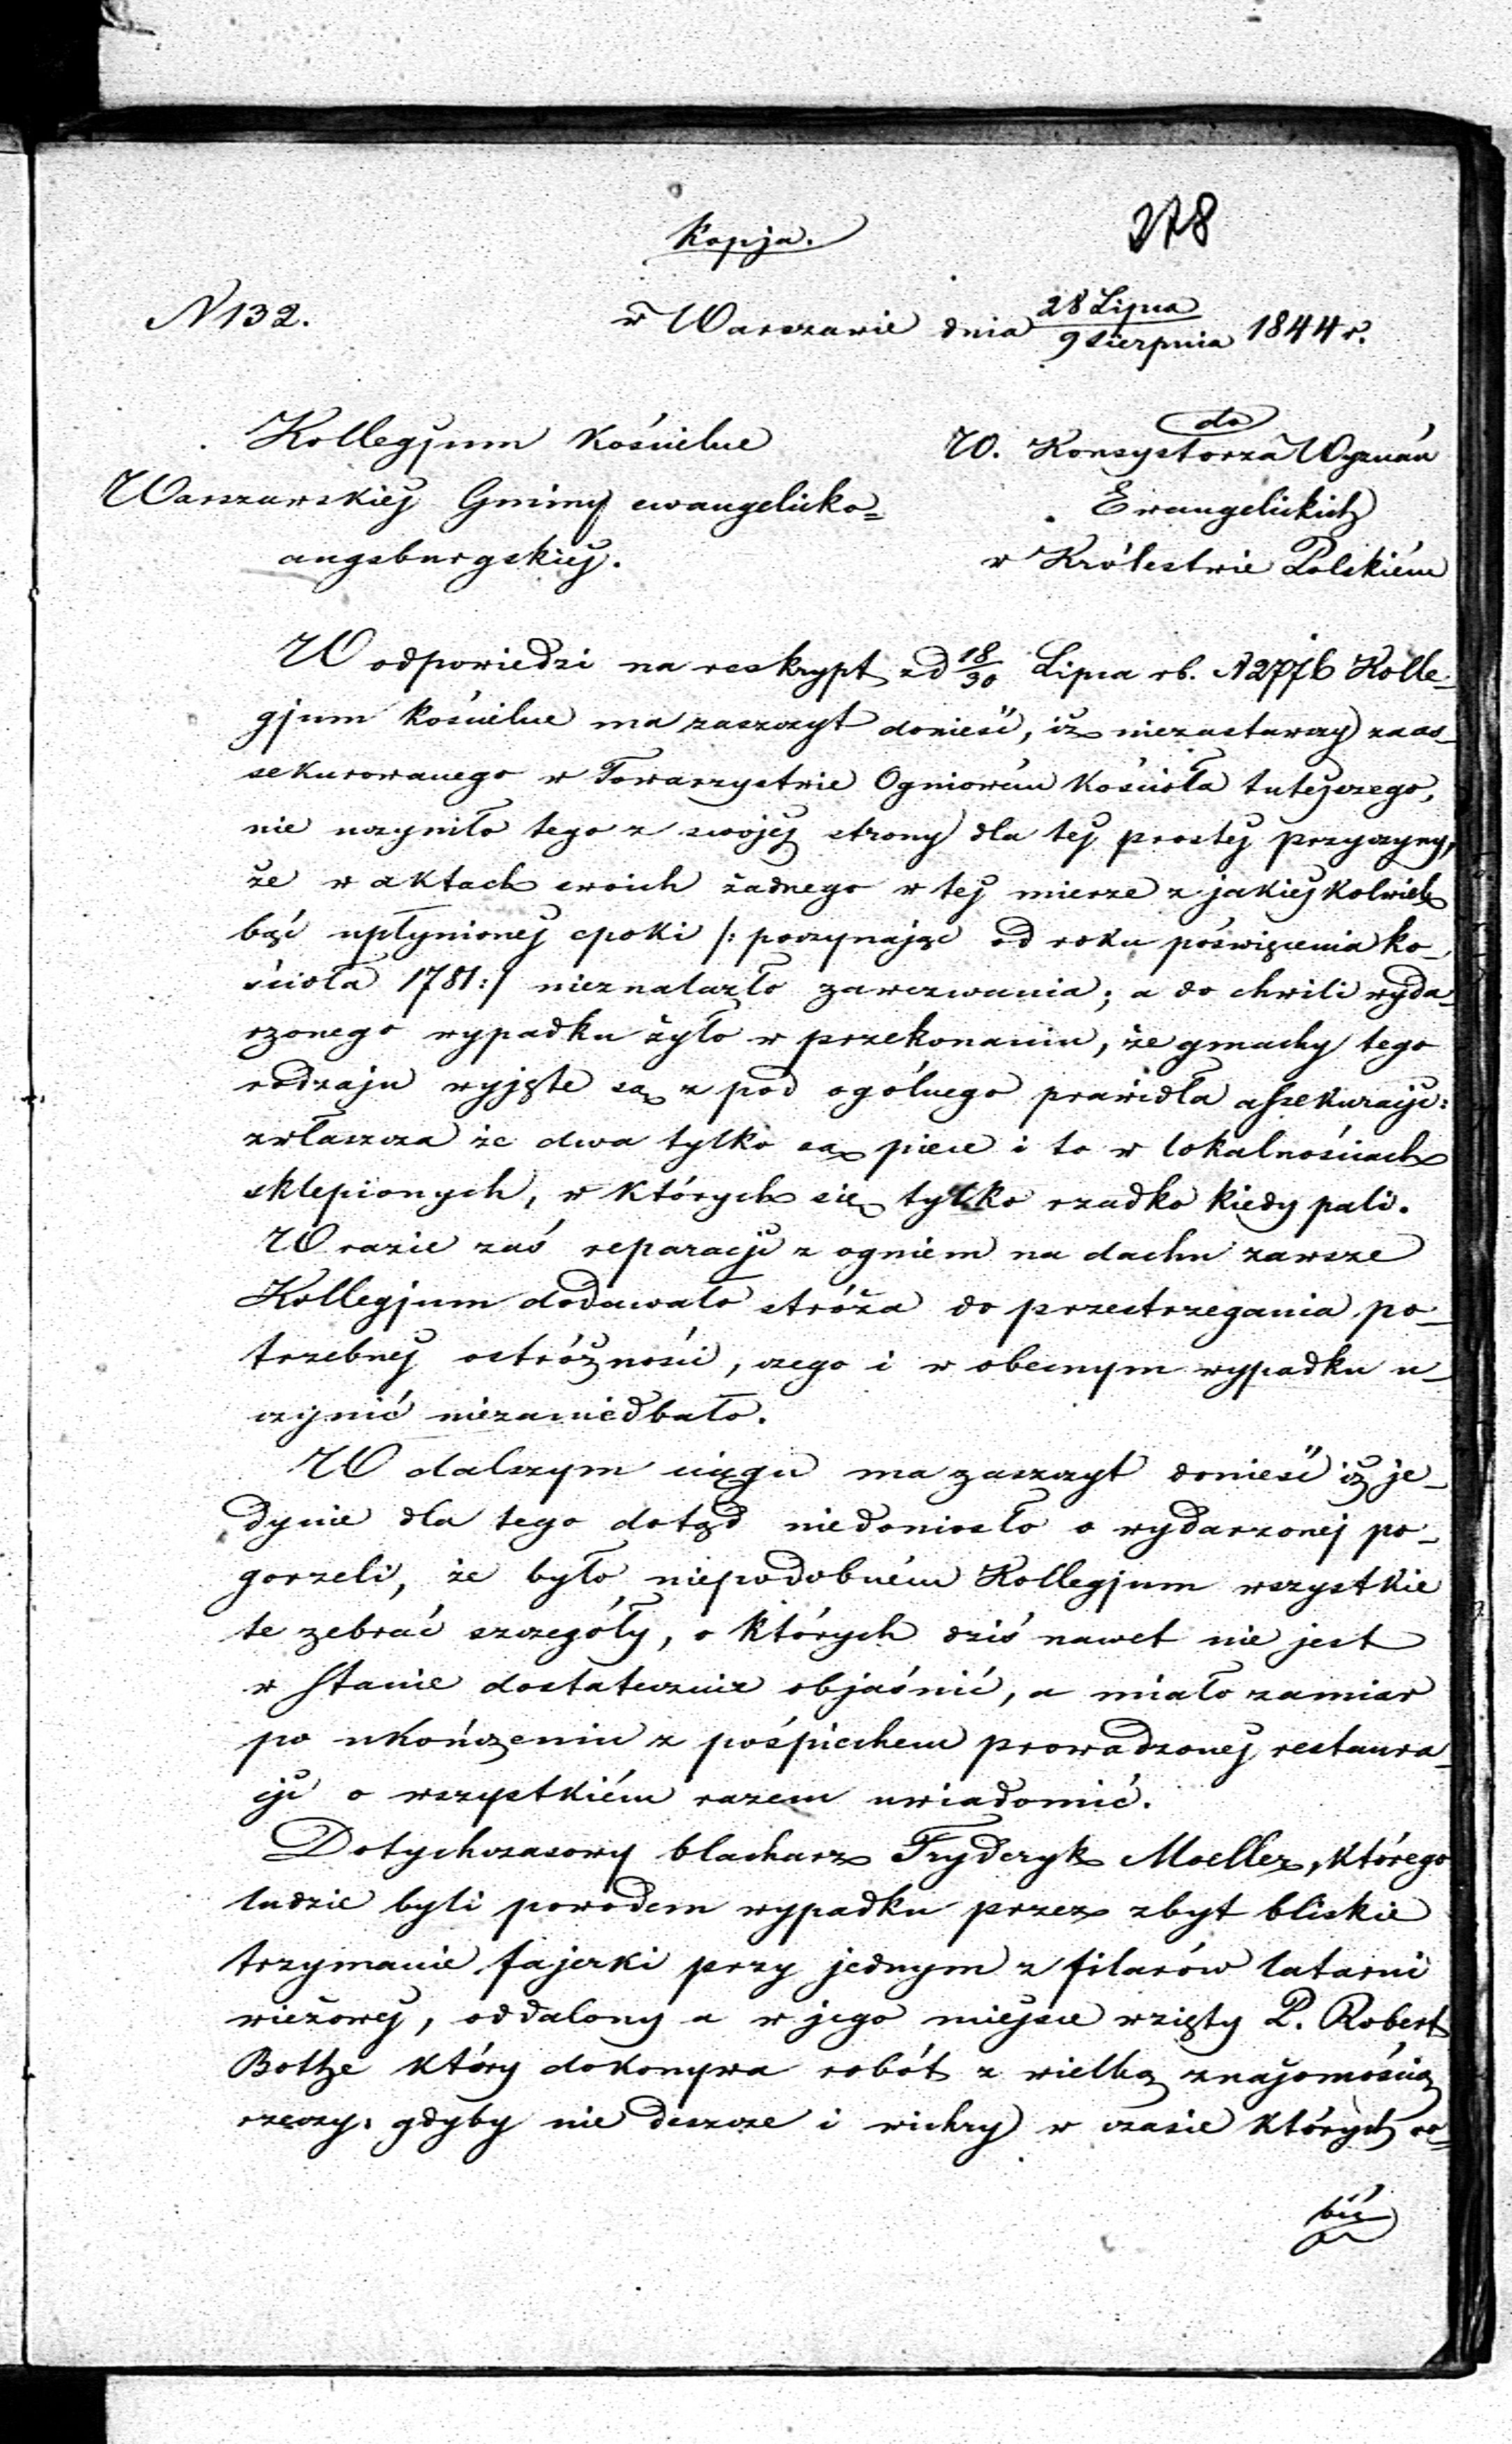 Kopja.
278
N 132.
w Warszawie dnia 28 Lipca / 9 Sierpnia 1844 r.
Kollegjum Kościelne
Warszawskiej Gminy ewangelicko=
augsburgskiej.
do
W. Konsystorza Wyznań
Ewangelickich
w Królestwie Polskiém
W odpowiedzi na reskrypt z d 18/30 Lipca rb. N 2776 Kolle-
gjum kościelne ma zaszczyt donieść, iż niezastawszy zaas-
sekurowanego w Towarzystwie Ogniowém Kościoła tutejszego,
nie uczyniło tego z swojej strony dla tej prostej przyczyny,
że w aktach swoich żadnego w tej mierze z jakiejkolwiek
bąć upłynionej epoki /: poczynając od roku poświęcenia ko-
ścioła 1781:/ nieznalazło zawezwania; a do chwili wyda-
rzonego wypadku żyło w przekonaniu, że gmachy tego
rodzaju wyjęte są z pod ogólnego prawidła assekuracji:
zwłaszcza że dwa tylko są piece i to w lokalnościach
sklepionych, w których się tylko rzadko kiedy pali.
W razie zaś reparacji z ogniem na dachu zawsze
Kollegjum dodawało stróża do przestrzegania po-
trzebnej ostróżności, czego i w obecnym wypadku u-
czynić niezaniedbało.
W dalszym ciągu ma zaszczyt donieść iż je-
dynie dla tego dotąd niedoniosło o wydarzonej po-
gorzeli, że było niepodobném Kollegjum wszystkie
te zebrać szczegóły, o których dziś nawet nie jest
w stanie dostatecznie objaśnić, a miało zamiar
po ukończeniu z pośpiechem prowadzonej restaura-
cji o wszystkiém razem uwiadomić.
Dotychczasowy blacharz Fryderyk Moeller, którego
ludzie byli powodem wypadku przez zbyt bliskie
trzymanie fajerki przy jednym z filarów latarni
wieżowej, oddalony a w jego miejsce wzięty P. Robert
Bothe który dokonywa robót z wielką znajomością
rzeczy. gdyby nie deszcze i wichry w czasie których ro=
bić